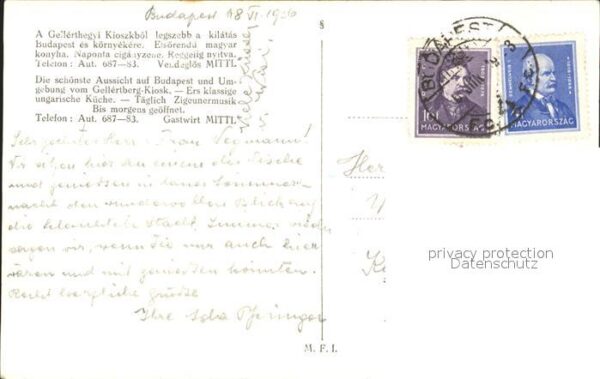 Budapest 18 VI. 1936
A Gellérthegyi Kioszkból legszebb a kilátás
Budapest és környékére. Elsőrendű magyar
konyha. Naponta cigányzene. Reggelig nyitva.
Telefon: Aut. 687—83. Vendéglős MITTL
Die schönste Aussicht auf Budapest und Um-
gebung vom Gellértberg-Kiosk. — Ers klassige
ungarische Küche. — Täglich Zigeunermusik
Bis morgens geöffnet.
Telefon: Aut. 687—83. Gastwirt MITTL
Viele Grüsse
Sehr geehrter Herr u. Frau
Wir sitzen hier an einem der Tische
und geniessen in lauer Sommer-
nacht den wundervollen Blick auf
die beleuchtete Stadt. Immer wieder
sagen wir, wenn Sie nur auch hier
wären und mit geniessen könnten.
Recht herzliche Grüsse
Ihre
§
M. F. I.
BUDAPEST
10 f
MAGYARORSZÁG
MAGYARORSZÁG
Her
privacy protection
Datenschutz